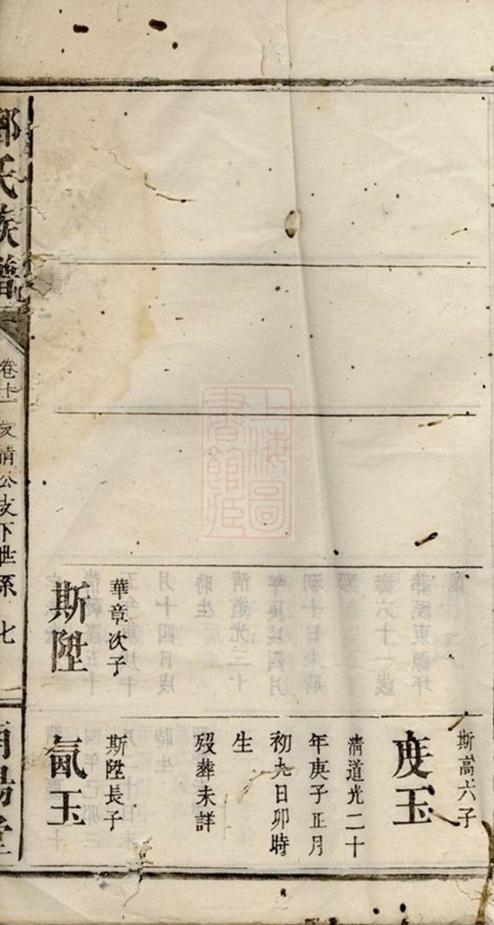 華章次子
斯陞
斯高六子
度玉
清道光二十
年庚子正月
初九日卯時
生
歿葬未詳
斯陞長子
氤玉
氏族譜
卷十一
友清公支下世系
七
南陽堂
上海圖
書館藏